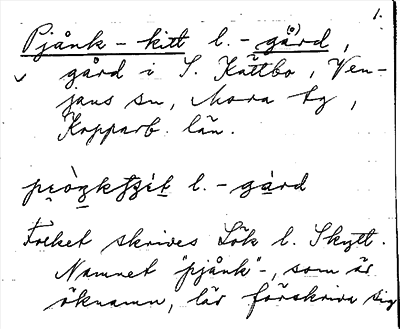 1.
Pjånk-kitt l. -gård,
gård i S. Kättbo, Ven-
jans sn, Mora tg,
Kopparb. län.
l. -gàrd
Folket skrives Lök l. Skytt.
Namnet "pjånk"-, som är
öknamn, lär förskriva sig